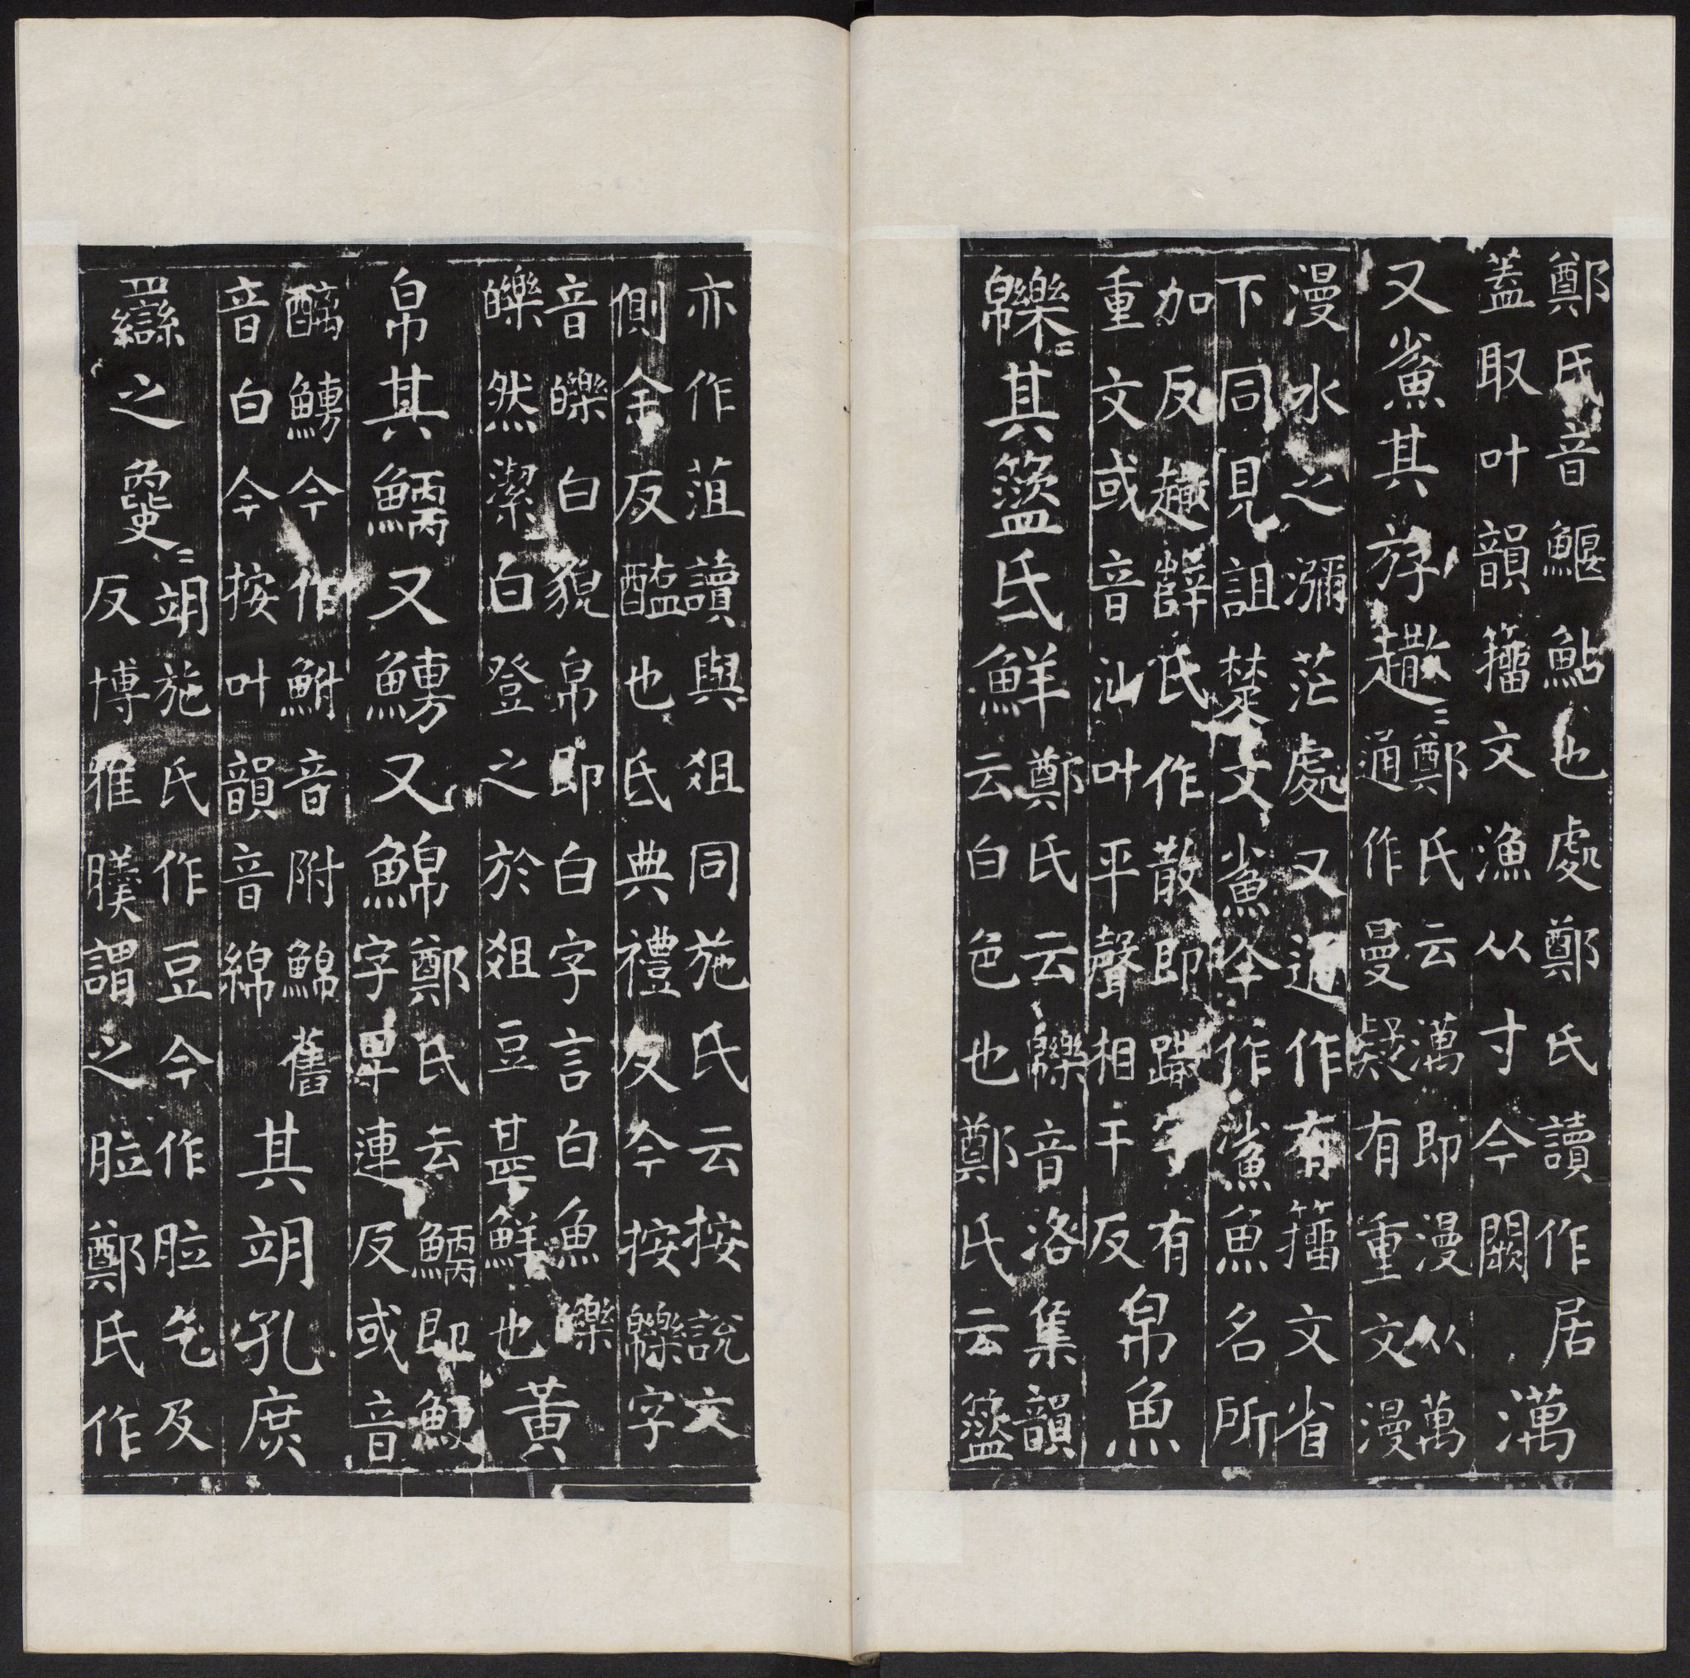 鄭氏音鰋鮎也處鄭氏讀作居澫
蓋取叶韻籒文漁从寸今闕
又鯊其斿𧽤〓鄭氏云澫即漫从萬
通作曼疑有重文漫
漫水之瀰茫處又通作有籒文省
下同見詛楚文鯊今作鯊魚名所
加反𧽤薛氏作散即𨅖字有
重文或音汕叶平聲相干反帛魚
𩏂〓其籃氐鮮鄭氏云𩏂音洛集韻
云白色也鄭氏云籃
亦作菹讀與俎同施氏云按說文
側余反醢也氐典禮反今按𩏂字
音皪白貌帛即白字言白魚皪
皪然潔白登之於俎豆甚鮮也黃
帛其鯾又鰟又鯞鄭氏云鯾即鯾
字卑連反或音
䣼鰟今作鮒音附鯞舊
音白今按叶韻音綿其𦐇孔庶
臠之㲋〓𦐇施氏作豆今作䏠乞及
反博雅䐑謂之䏠鄭氏作